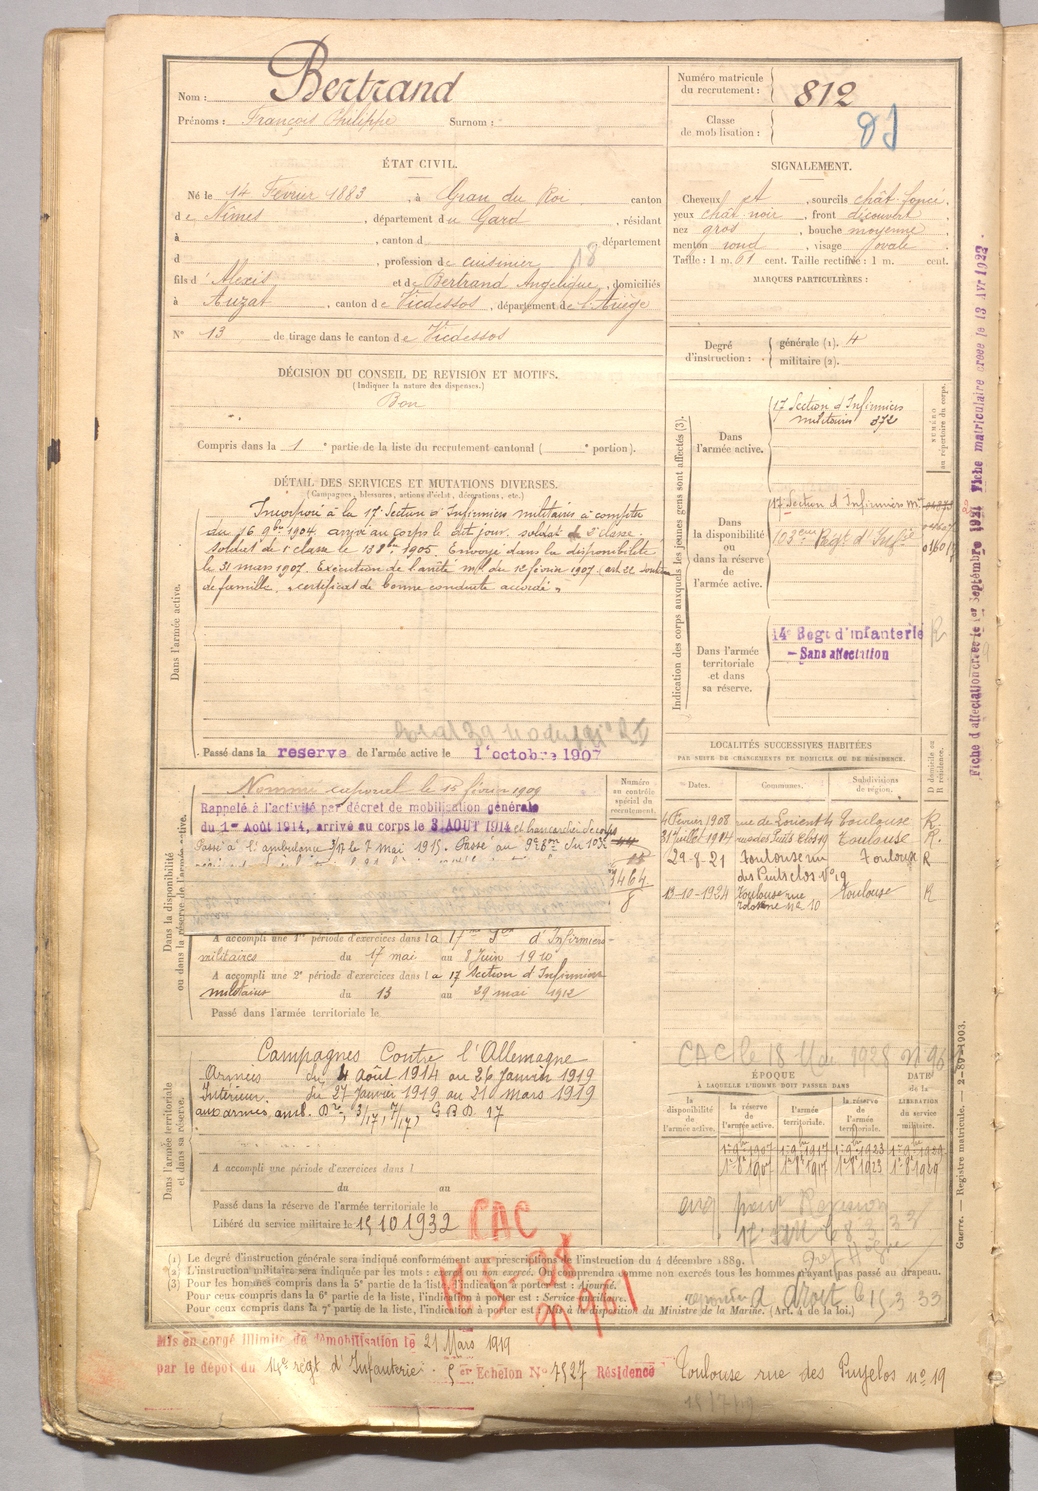 Nom : Bertrand
Prénoms : François Philippe Surnom :
Numéro matricule du recrutement : 812
Classe de mobilisation :
ÉTAT CIVIL.
Né le 14 Février 1883, à Grau du Roi, canton
de Nîmes, département du Gard, résidant
à , canton d , département
d , profession de cuisinier
fils d'Alexis et de Bertrand Angélique, domiciliés
à Auzat, canton de Vicdessos, département de l'Ariège
N° 13 de tirage dans le canton de Vicdessos
SIGNALEMENT.
Cheveux et , sourcils chât. foncé,
yeux chât. noir, front découvert
nez gros, bouche moyenne
menton rond, visage ovale
Taille : 1 m. 61 cent. Taille rectifiée : 1 m. cent.
MARQUES PARTICULIÈRES :
Degré d'instruction : générale (1). 4
militaire (2).
DÉCISION DU CONSEIL DE REVISION ET MOTIFS.
(Indiquer la nature des dispenses.)
Bon
Compris dans la 1e partie de la liste du recrutement cantonal ( e portion).
DÉTAIL DES SERVICES ET MUTATIONS DIVERSES.
(Campagnes, blessures, actions d'éclat, décorations, etc.)
Dans l'armée active.
Incorporé à la 17e Section d'Infirmiers militaires à compter
du 16 9bre 1904, arrivé au corps le dit jour, soldat de 2e classe.
Soldat de 1e classe le 13 8bre 1905. Envoyé dans la disponibilité
le 31 mars 1907. Exécution de l'arrêté mel du 12 février 1907 (art 22 soutien
de famille, certificat de bonne conduite accordé
Passé dans la reserve de l'armée active le 1er octobre 1907
Indication des corps auxquels les jeunes gens sont affectés (3).
NUMÉRO au répertoire du corps.
Dans l'armée active.
17 Section d'Infirmiers
militaires 872
Dans la disponibilité ou dans la réserve de l'armée active.
17 Section d'Infirmiers
103eme Régt d'Infie
Dans l'armée territoriale et dans sa réserve.
14e Regt d'infanterie
- Sans affectation
R
Dans la disponibilité ou dans la réserve de l'armée active.
Numéro au contrôle spécial du recrutement.
Nommé caporal le 15 février 1909
Rappelé à l'activité par décret de mobilisation générale
du 1er Août 1914, arrivé au corps le 3 AOUT 1914 et brancardier de corps
Passé à l'ambulance 3/17 le 7 mai 1915. Passé au
3464
8
A accompli une 1re période d'exercices dans la 17me Son d'Infirmiers
militaires du 17 mai au 8 juin 1910
A accompli une 2e période d'exercices dans la 17 Section d'Infirmiers
militaires du 13 au 29 mai 1912
Passé dans l'armée territoriale le
LOCALITÉS SUCCESSIVES HABITÉES
PAR SUITE DE CHANGEMENTS DE DOMICILE OU DE RÉSIDENCE.
Dates. Communes. Subdivisions de région. D domicile ou R résidence.
4 Février 1908 rue de Lorient 4 Toulouse R.
31 juillet 1914 Toulouse R.
29-8-21 Toulouse rue Toulouse R
des Puits clos No 19
13-10-1924 Toulouse rue Toulouse R
Dans l'armée territoriale et dans sa réserve.
Campagnes Contre l'Allemagne
Armées du 4 août 1914 au 26 Janvier 1919
Intérieur. du 27 Janvier 1919 au 21 mars 1919
aux armés, amb. 3/17, 7/17, G B D 17
A accompli une période d'exercices dans l
du au
Passé dans la réserve de l'armée territoriale le
Libéré du service militaire le 15 10 1932
CAC le 18 Mai 1928 n° 961
ÉPOQUE
À LAQUELLE L'HOMME DOIT PASSER DANS
DATE de la LIBÉRATION du service militaire.
la disponibilité de l'armée active. la réserve de l'armée active. l'armée territoriale. la réserve de l'armée territoriale.
1er 8bre 1907 1er 8bre 1917 1er 8bre 1923 1er 8bre 1929
CAC
18-5-28
n 961
(1) Le degré d'instruction générale sera indiqué conformément aux prescriptions de l'instruction du 4 décembre 1889.
(2) L'instruction militaire sera indiquée par les mots : exercé ou non exercé. On comprendra comme non exercés tous les hommes n'ayant pas passé au drapeau.
(3) Pour les hommes compris dans la 5e partie de la liste, l'indication à porter est : Ajourné.
Pour ceux compris dans la 6e partie de la liste, l'indication à porter est : Service auxiliaire.
Pour ceux compris dans la 7e partie de la liste, l'indication à porter est : Mis à la disposition du Ministre de la Marine. (Art. 4 de la loi.)
Mis en congé illimité de démobilisation le 21 Mars 1919
par le dépôt du 14e régt d'Infanterie 5er Echelon No 7527 Résidence Toulouse rue des Puyelos n° 19
Guerre. — Registre matricule. — 2-89-1903.
Fiche d'affectation créée le 1er Septembre 1921 Fiche matriculaire créée le 13 Avr 1923